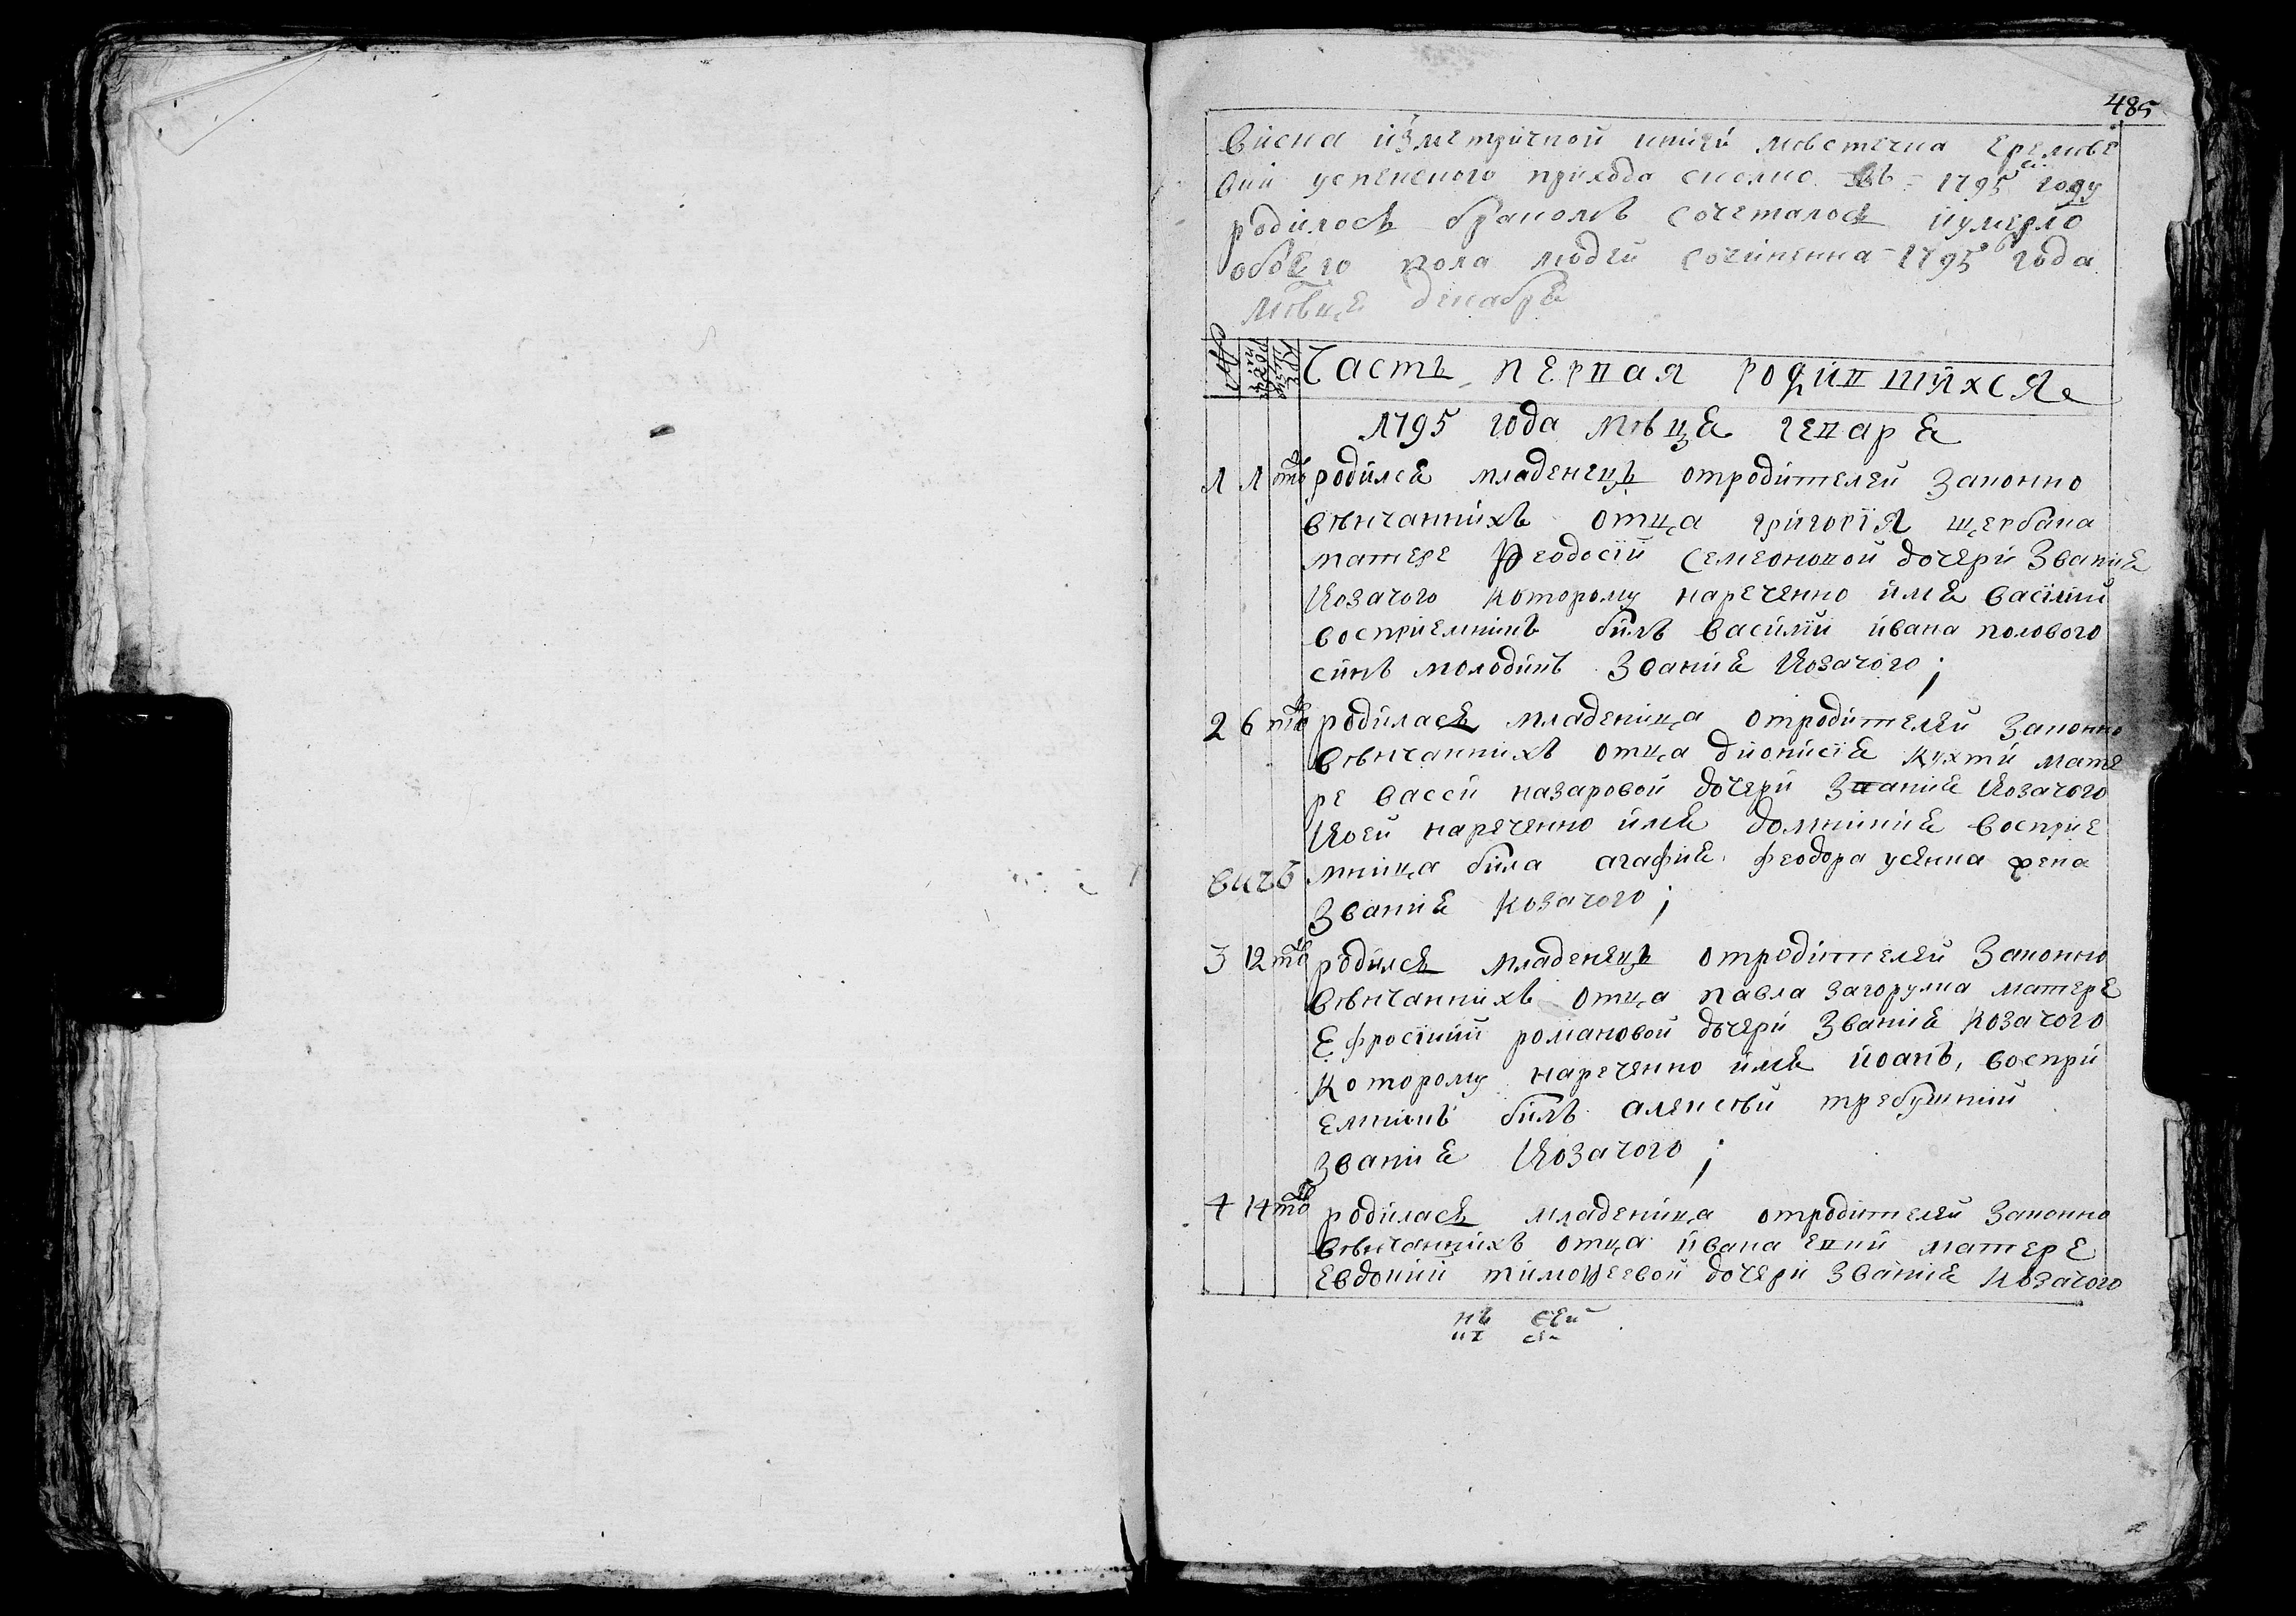 485
Виска изъ метричной книги мѣстечка Еремѣе
вки успенского прихода сколко въ 1795 году
родилось бракомъ сочеталось и умерло
обоего пола людей сочиненна 1795 года
мѣсця декабрѣ
Часть первая родившихся
1795 года мѣсця генаря
1 1 родился младенецъ отродителей законно
вѣнчаннихъ отца григория щербака
матере Ѳеодосий семеоновой дочери звания
козачого которому нареченно имя василий
восприемникъ билъ василий ивана полового
синъ молодикъ звания козачого;
2 6 родилась младеница отродителей законно
вѣнчаннихъ отца дионисия кухти мате
ре васси назаровой дочери звания козачого
коей нареченно имя домникия восприе
мница била агафия феодора усенка жена
звания козачого;
3 12 родился младенецъ отродителей законно
вѣнчаннихъ отца павла загорулка матере
Ефросинии романовой дочери звания козачого
которому нареченно имя иоанъ, воспри
емникъ билъ алексѣй требушний
звания козачого;
4 14 родилась младеница отродителей законно
вѣнчаннихъ отца ивана матере
евдокии тимоѳеевой дочери звания козачого